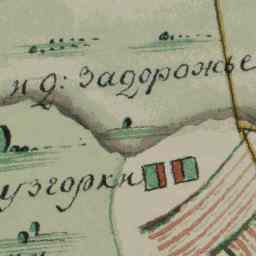 и д: Задорожье
узгорки